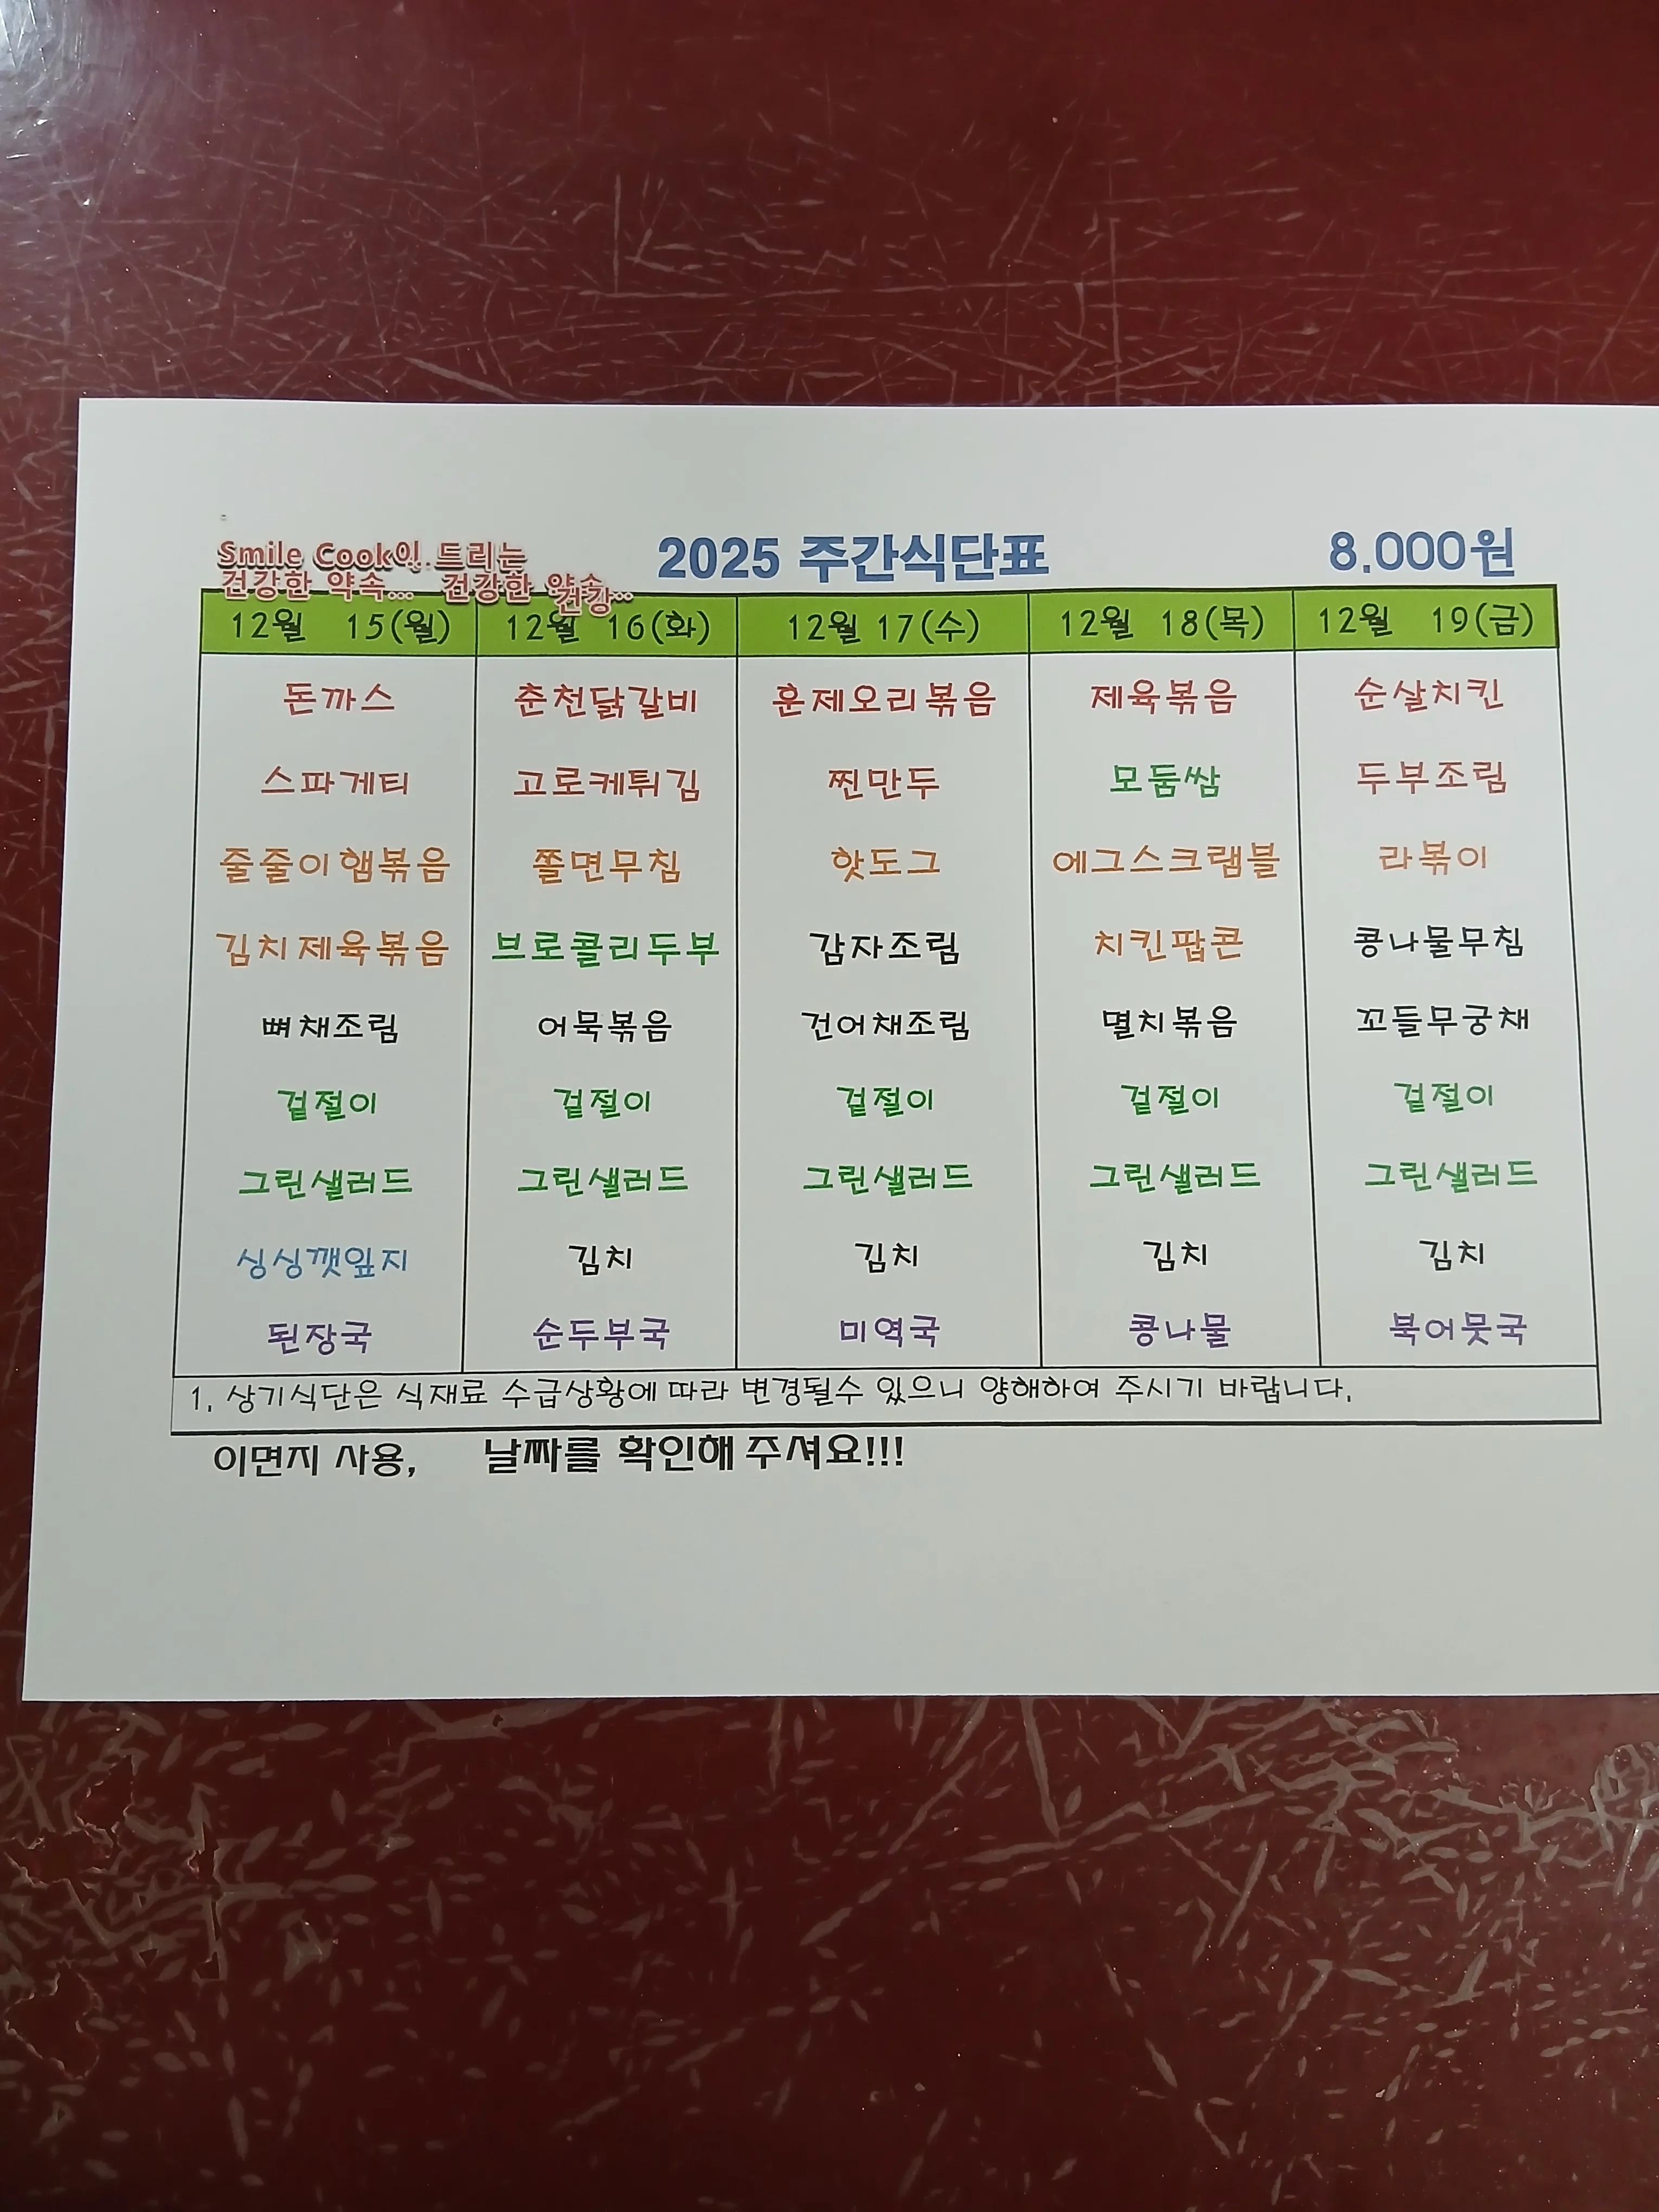 Smile Cook이.. 드리는 2025 주간식단표 8.000원
건강한 약속... 건강한 약속..
건강
12월 15(월) 12월 16(화) 12월 17(수) 12월 18(목) 12월 19(금)
돈까스 춘천닭갈비 훈제오리볶음 제육볶음 순살치킨
스파게티 고로케튀김 찐만두 모둠쌈 두부조림
줄줄이햄볶음 쫄면무침 핫도그 에그스크램블 라볶이
김치제육볶음 브로콜리두부 감자조림 치킨팝콘 콩나물무침
뼈채조림 어묵볶음 건어채조림 멸치볶음 꼬들무궁채
겉절이 겉절이 겉절이 겉절이 겉절이
그린샐러드 그린샐러드 그린샐러드 그린샐러드 그린샐러드
싱싱깻잎지 김치 김치 김치 김치
된장국 순두부국 미역국 콩나물 북어뭇국
1. 상기식단은 식재료 수급상황에 따라 변경될수 있으니 양해하여 주시기 바랍니다.
이면지 사용, 날짜를 확인해 주셔요!!!